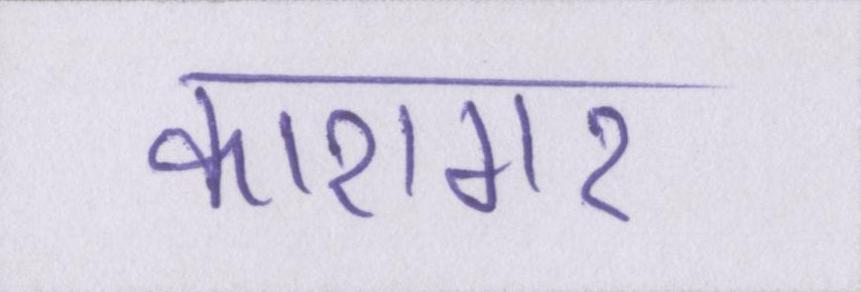 कारागार